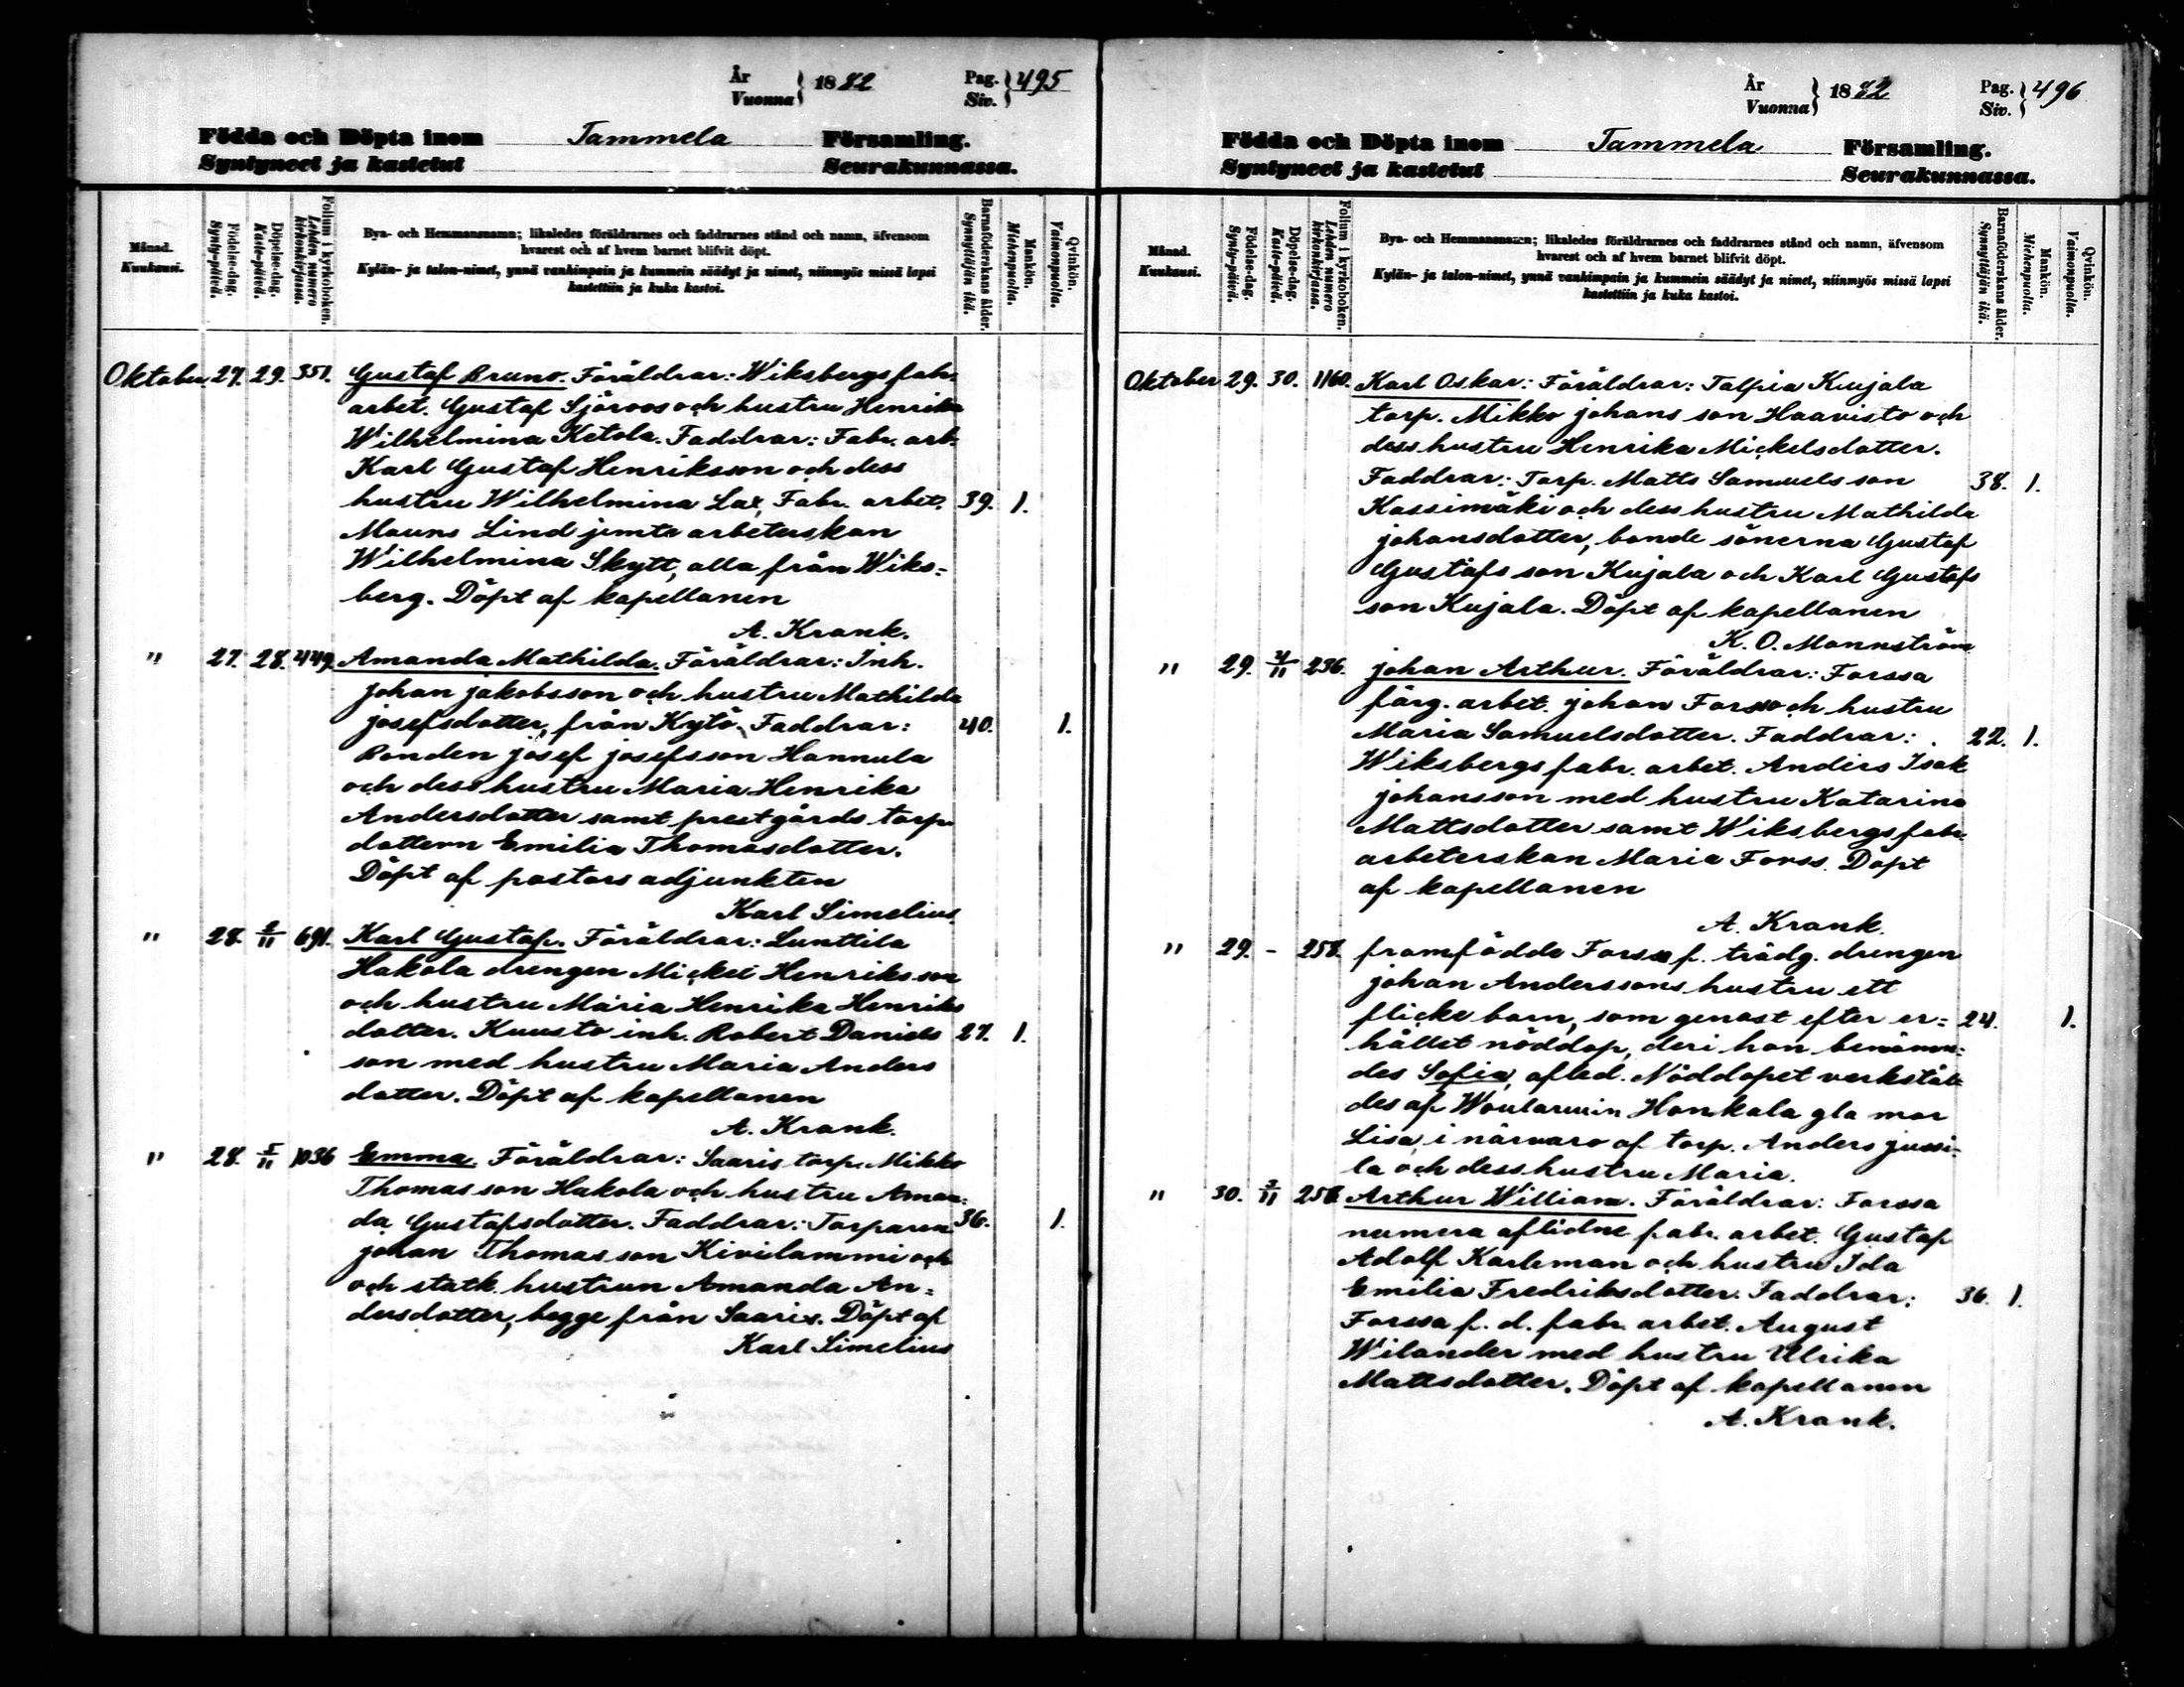 År
Vuonna } 1882 Pag.
Siv. } 495
Födda och Döpta inom Tammela Församling.
Syntyneet ja kastetut Seurakunnassa.
Månad.
Kuukausi.
Födelse-dag.
Synty-päivä.
Döpelse-dag.
Kaste-päivä.
Folium i kyrkoboken.
Lehden numero
kirkonkirjassa.
Bya- och Hemmansnamn; likaledes föräldrarnes och faddrarnes stånd och namn, äfvensom
hvarest och af hvem barnet blifvit döpt.
Kylän- ja talon-nimet, ynnä vanhimpain ja kummein säädyt ja nimet, niinmyös missä lapsi
kastettiin ja kuka kastoi.
Barnaföderskans ålder.
Synnyttäjän ikä.
Mankön.
Miehenpuolta.
Qvinkön.
Vaimonpuolta.
Oktober 27. 29. 351. Gustaf Bruno. Föräldrar: Wiksbergs fab.
arbet. Gustaf Sjöroos och hustru Henrika
Wilhelmina Ketola. Faddrar: Fabr. arb.
Karl Gustaf Henriksson och dess
hustru Wilhelmina Lax, Fabr. arbet. 39. 1.
Mauns Lind jemte arbeterskan
Wilhelmina Skytt, alla från Wiks=
berg. Döpt af kapellanen
A. Krank.
" 27. 28. 449. Amanda Mathilda. Föräldrar: Inh.
Johan Jakobsson och hustru Mathilda
Josefsdotter, från Kytö. Faddrar: 40. 1.
Bonden Josef Josefsson Hannula
och dess hustru Maria Henrika
Andersdotter samt prestgårds torp.
dottern Emilia Thomasdotter.
Döpt af pastorsadjunkten
Karl Simelius.
" 28. 2/11 691. Karl Gustaf. Föräldrar: Lunttila
Hakola drengen Mickel Henriksson
och hustru Maria Henrika Henriks
dotter. Kuusto inh. Robert Daniels 27. 1.
son med hustru Maria Anders
dotter. Döpt af kapellanen
A. Krank.
" 28. 5/11 1036 Emma. Föräldrar: Saaris torp. Mikko
Thomasson Hakola och hustru Aman=
da Gustafsdotter. Faddrar: Torparen 36. 1.
Johan Thomasson Kivilammi och
och statk. hustrun Amanda An=
dersdotter, begge från Saaris. Döpt af
Karl Simelius
År
Vuonna } 1882 Pag.
Siv. } 496
Födda och Döpta inom Tammela Församling.
Syntyneet ja kastetut Seurakunnassa.
Månad.
Kuukausi.
Födelse-dag.
Synty-päivä.
Döpelse-dag.
Kaste-päivä.
Folium i kyrkoboken.
Lehden numero
kirkonkirjassa.
Bya- och Hemmansnamn; likaledes föräldrarnes och faddrarnes stånd och namn, äfvensom
hvarest och af hvem barnet blifvit döpt.
Kylän- ja talon-nimet, ynnä vanhimpain ja kummein säädyt ja nimet, niinmyös missä lapsi
kastettiin ja kuka kastoi.
Barnaföderskans ålder.
Synnyttäjän ikä.
Mankön.
Miehenpuolta.
Qvinkön.
Vaimonpuolta.
Oktober 29. 30. 1160. Karl Oskar: Föräldrar: Talpia Kujala
torp. Mikko Johansson Haavisto och
dess hustru Henrika Mickelsdotter.
Faddrar: Torp. Matts Samuelsson 38. 1.
Kassimäki och dess hustru Mathilda
Johansdotter, bonde sönerna Gustaf
Gustafsson Kujala och Karl Gustafs
son Kujala. Döpt af kapellanen
K. O. Mannström
" 29. 4/11 236. Johan Arthur. Föräldrar: Forssa
färg. arbet. Johan Forss och hustru
Maria Samuelsdotter. Faddrar: 22. 1.
Wiksbergs fabr. arbet. Anders Isak
Johansson med hustru Katarina
Mattsdotter samt Wiksbergs fabr.
arbeterskan Maria Forss. Döpt
af kapellanen
A. Krank.
" 29. - 258. framfödde Forssa f. trädg. drengen
Johan Anderssons hustru ett
flicke barn, som genast efter er= 24. 1.
hållet nöddop, deri hon benämn=
des Sofia, afled. Nöddopet verkstäl=
des af Honkala gla mor
Lisa, i närvaro af torp. Anders Jussi=
la och dess hustru Maria.
" 30. 3/11 256 Arthur William. Föräldrar: Forssa
numera aflidne fabr. arbet. Gustaf
Adolf Karleman och hustru Ida
Emilia Fredriksdotter. Faddrar: 36. 1.
Forssa f. d. fabr. arbet. August
Wilander med hustru Ulrika
Mattsdotter. Döpt af kapellanen
A. Krank.